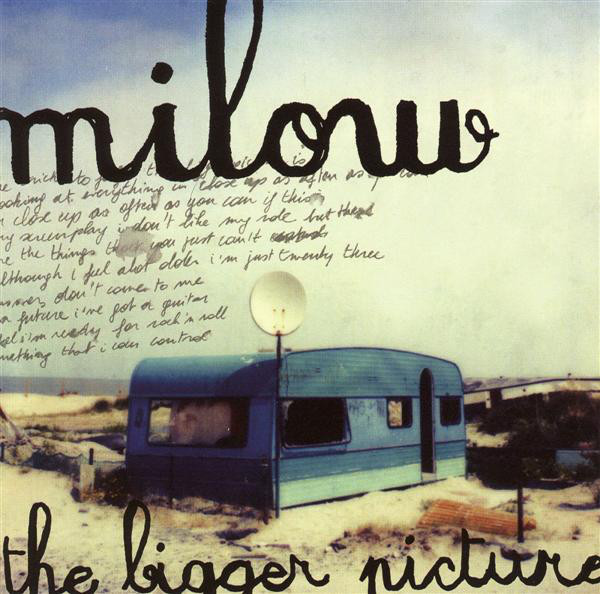 milow
looking at everything in close up as often as
close up as often as you can if this is
my screenplay i don't like my role but there
are the things that you just can't
although i feel a lot older i'm just twenty three
answers don't come to me
future i've got a guitar
i'm ready for rock 'n roll
something that i can control
the bigger picture